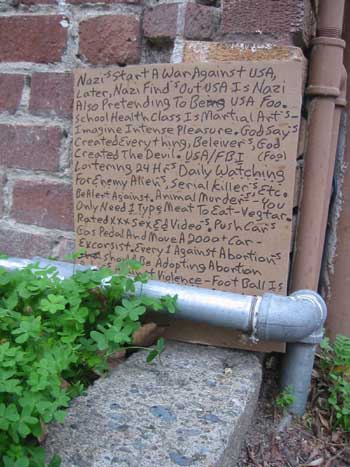 Nazi's Start A War Against USA,
Later, Nazi Find's Out USA Is Nazi
Also Pretending To Being USA Foo.
School Health Class Is Martial Art's
Imagine Intense Pleasure. God Say's
Created Everything, Beleiver's, God
Created The Devil. USA/FBI (Foo)
Lortering 24 Hrs Daily Watching
For Enemy Alien's, Serial Killer's Etc.
Be Alert Against, Animal Murder's - You
Only Need 1 Type Meat To Eat-Vegtar.
Rated XXX Sex Ed Video's, Push Car's
Gas Pedal And Move A 2000+ Car-
Excorsist, Every 1 Against Abortion's
should Be Adopting Abortion
Violence - Foot Ball Is